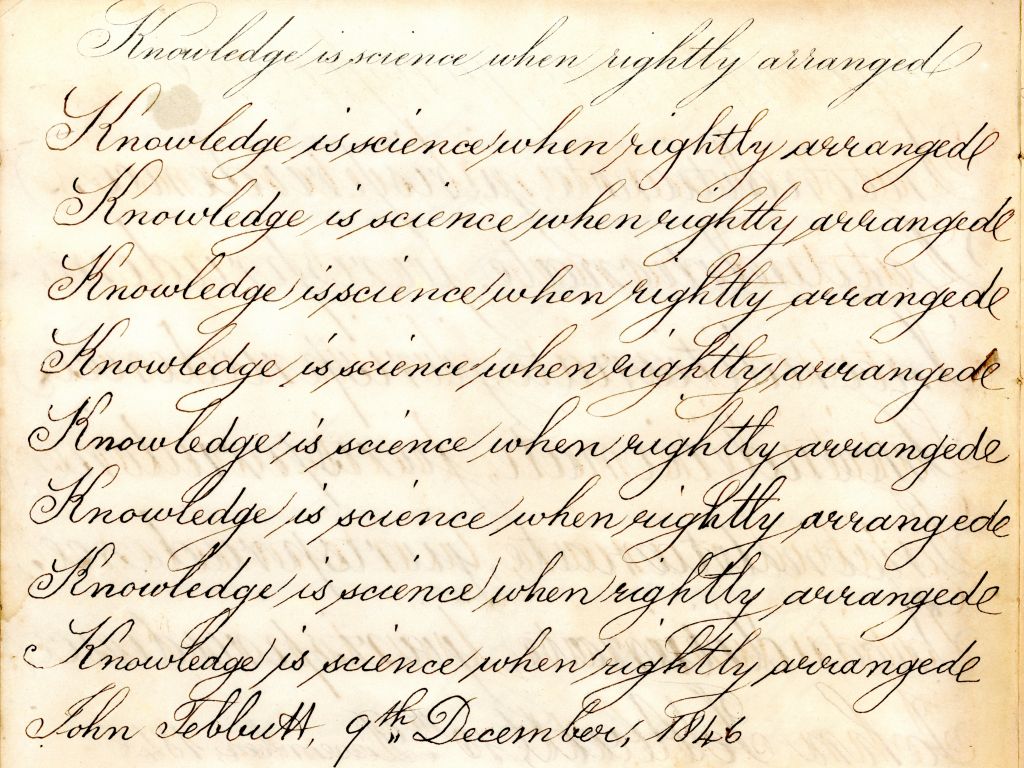 Knowledge is science when rightly arranged
Knowledge is science when rightly arranged
Knowledge is science when rightly arranged
Knowledge is science when rightly arranged
Knowledge is science when rightly arranged
Knowledge is science when rightly arranged
Knowledge is science when rightly arranged
Knowledge is science when rightly arranged
Knowledge is science when rightly arranged
John Tebbutt, 9th December, 1846